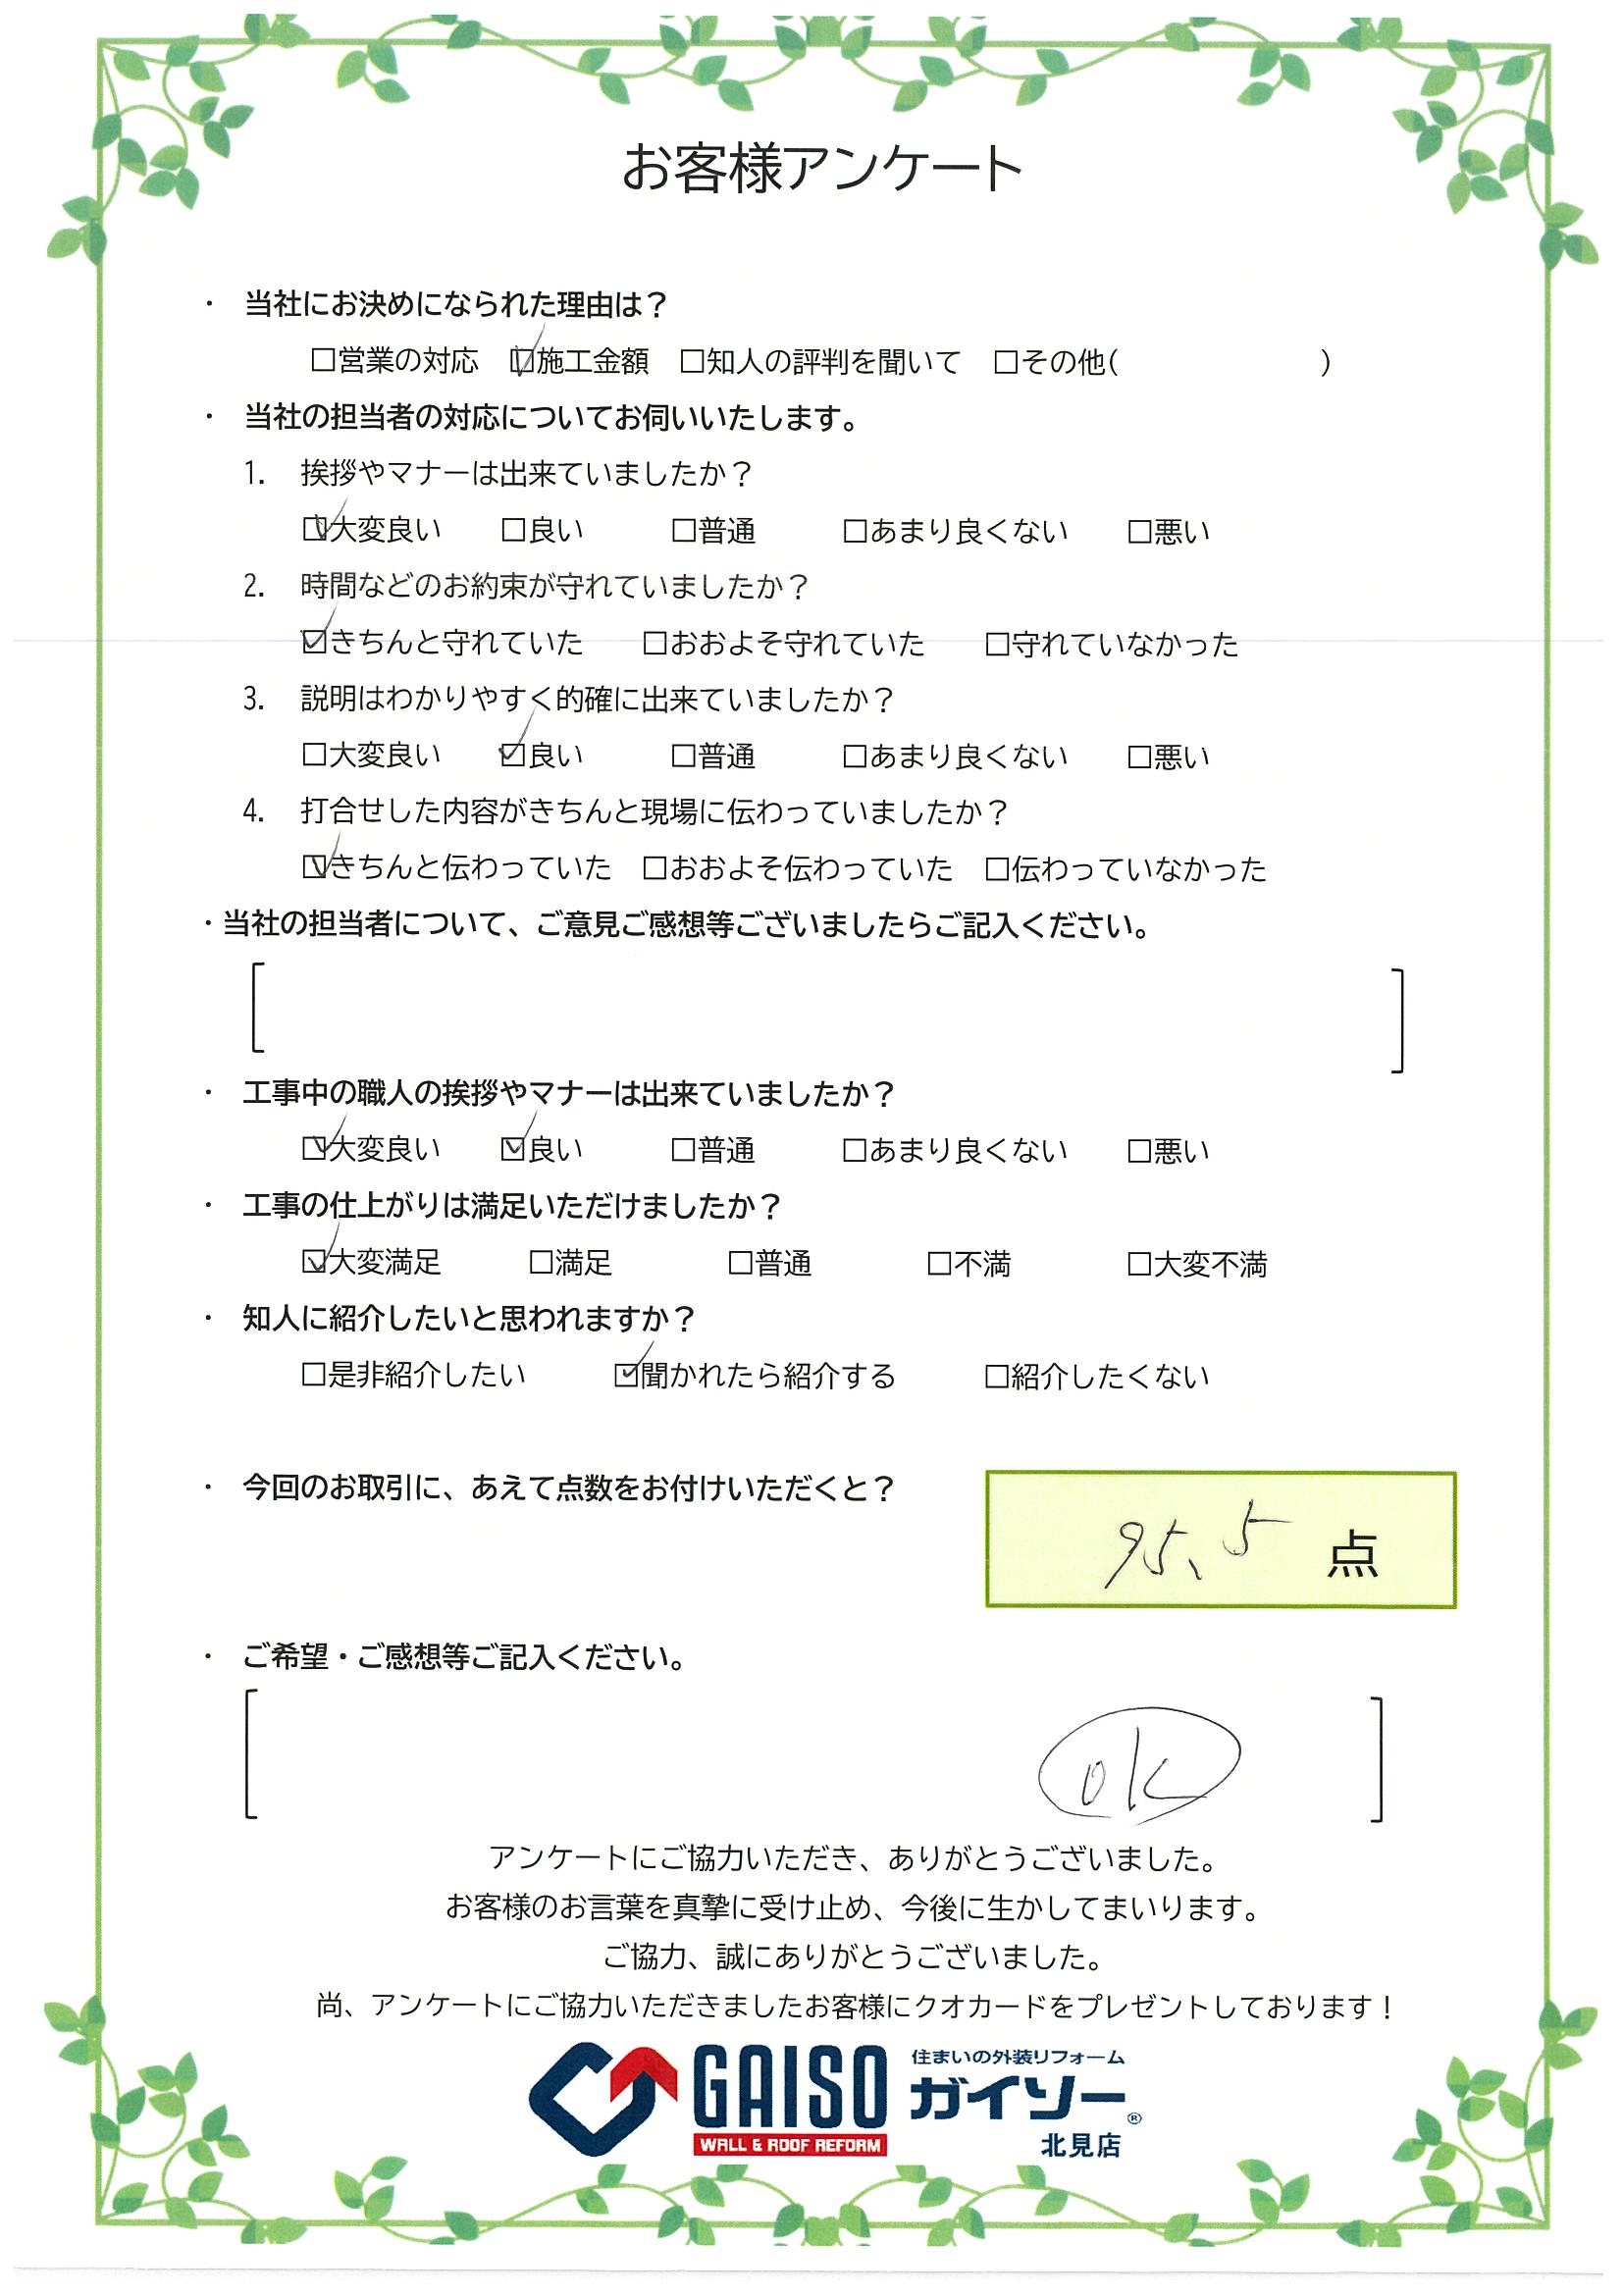 お客様アンケート
・ 当社にお決めになられた理由は？
□営業の対応 ☑施工金額 □知人の評判を聞いて □その他( )
・ 当社の担当者の対応についてお伺いいたします。
1. 挨拶やマナーは出来ていましたか？
☑大変良い □良い □普通 □あまり良くない □悪い
2. 時間などのお約束が守れていましたか？
☑きちんと守れていた □おおよそ守れていた □守れていなかった
3. 説明はわかりやすく的確に出来ていましたか？
□大変良い ☑良い □普通 □あまり良くない □悪い
4. 打合せした内容がきちんと現場に伝わっていましたか？
☑きちんと伝わっていた □おおよそ伝わっていた □伝わっていなかった
・当社の担当者について、ご意見ご感想等ございましたらご記入ください。
・ 工事中の職人の挨拶やマナーは出来ていましたか？
☑大変良い ☑良い □普通 □あまり良くない □悪い
・ 工事の仕上がりは満足いただけましたか？
☑大変満足 □満足 □普通 □不満 □大変不満
・ 知人に紹介したいと思われますか？
□是非紹介したい ☑聞かれたら紹介する □紹介したくない
・ 今回のお取引に、あえて点数をお付けいただくと？
95、5 点
・ ご希望・ご感想等ご記入ください。
ok
アンケートにご協力いただき、ありがとうございました。
お客様のお言葉を真摯に受け止め、今後に生かしてまいります。
ご協力、誠にありがとうございました。
尚、アンケートにご協力いただきましたお客様にクオカードをプレゼントしております！
GAISO
WALL & ROOF REFORM
住まいの外装リフォーム
ガイソー®
北見店